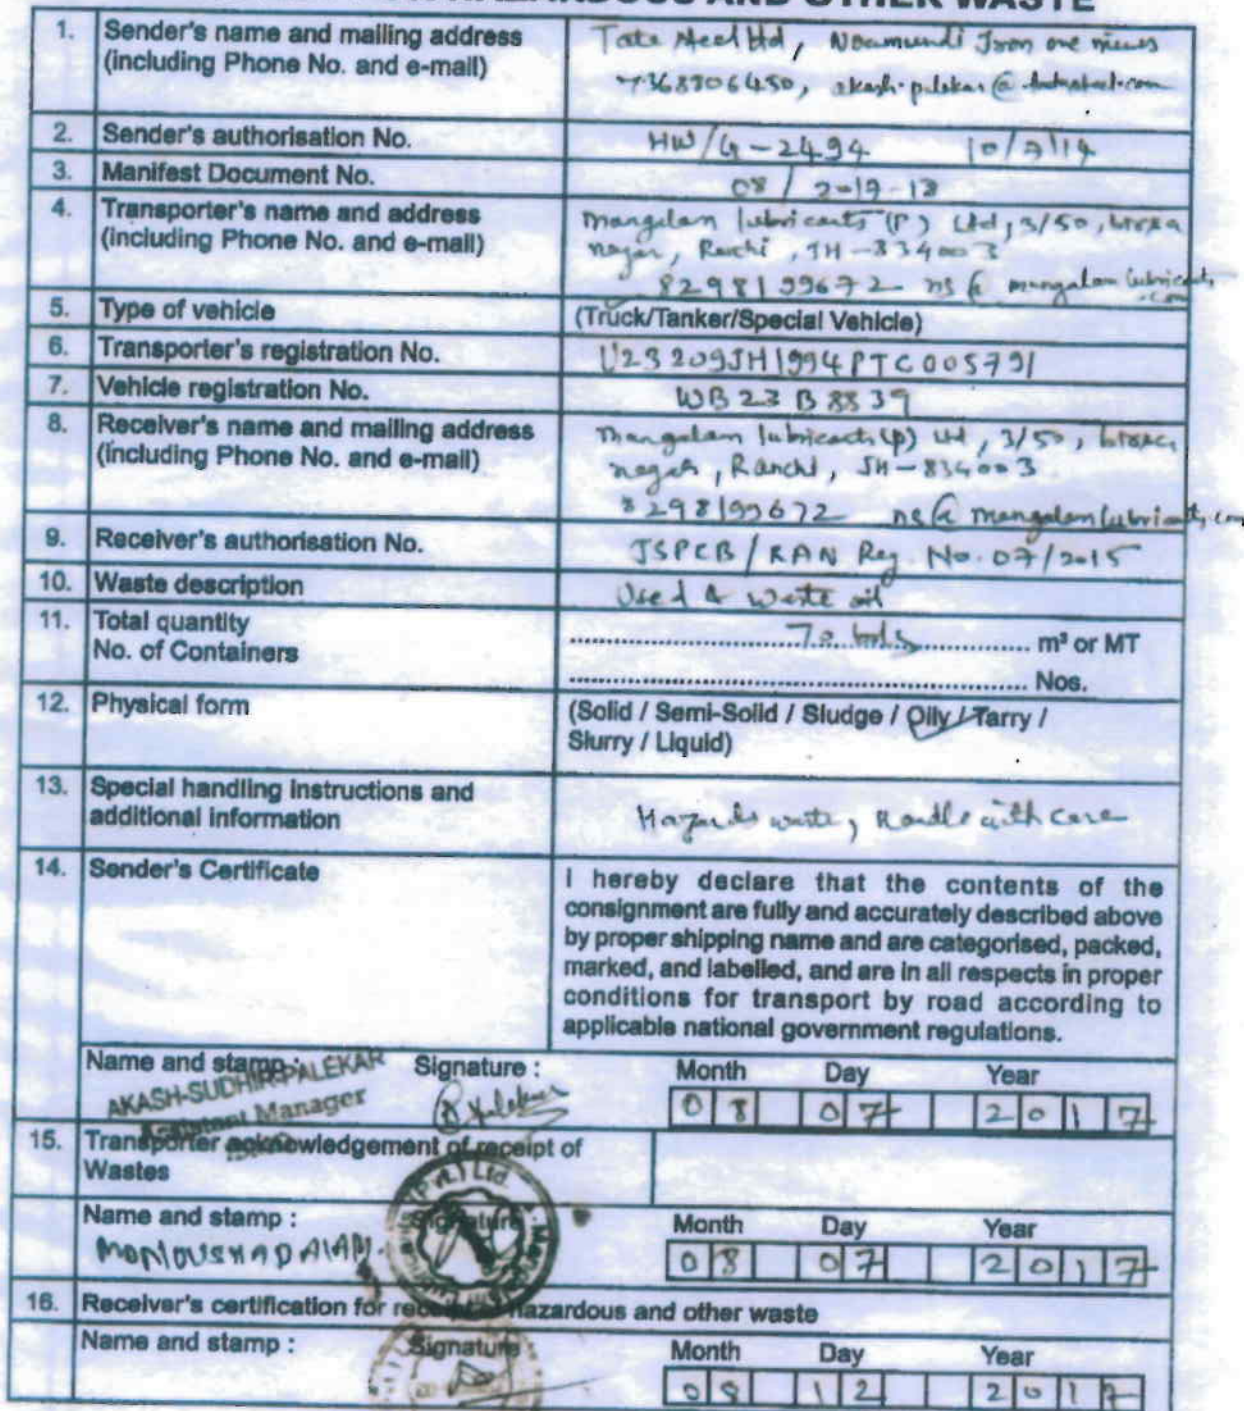 HAZARDOUS AND OTHER WASTE
1. Sender's name and mailing address
(including Phone No. and e-mail)
Tata Steel Ltd, Noamundi Iron ore mines
7368806450, akash.palekar@tatasteel.com
2. Sender's authorisation No.
HW/G-2494 10/7/14
3. Manifest Document No.
08 / 2017-18
4. Transporter's name and address
(including Phone No. and e-mail)
Mangalam lubricants (P) Ltd, 3/50, birsa
nagar, Ranchi, JH-834003
8298199672 ns@mangalamlubricants
.com
5. Type of vehicle
(Truck/Tanker/Special Vehicle)
6. Transporter's registration No.
U23209JH1994PTC005791
7. Vehicle registration No.
WB23B8839
8. Receiver's name and mailing address
(including Phone No. and e-mail)
Mangalam lubricants (p) Ltd, 3/50, birsa
nagar, Ranchi, JH-834003
8298199672 ns@mangalamlubricants.com
9. Receiver's authorisation No.
JSPCB/RAN Reg. No. 07/2015
10. Waste description
Used & Waste oil
11. Total quantity
No. of Containers
m³ or MT
Nos.
12. Physical form
(Solid / Semi-Solid / Sludge / Oily / Tarry /
Slurry / Liquid)
13. Special handling instructions and
additional information
Hazards waste, Handle with care
14. Sender's Certificate
I hereby declare that the contents of the
consignment are fully and accurately described above
by proper shipping name and are categorised, packed,
marked, and labelled, and are in all respects in proper
conditions for transport by road according to
applicable national government regulations.
Name and stamp : Signature : Month Day Year
AKASH SUDHIR PALEKAR
Assistant Manager
08 07 2017
15. Transporter acknowledgement of receipt of
Wastes
Name and stamp : Signature Month Day Year
(Pvt.) Ltd.
08 07 2017
16. Receiver's certification for receipt of hazardous and other waste
Name and stamp : Signature Month Day Year
08 12 2017